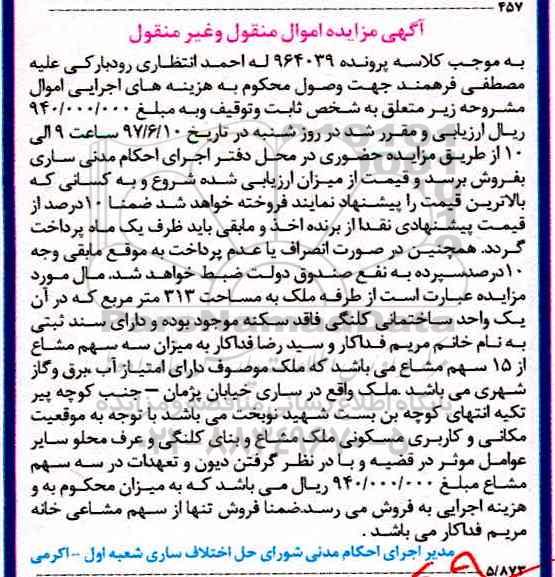 ۴۵۷
آگهی مزایده اموال منقول وغیر منقول
به موجب کلاسه پرونده ۹۶۴۰۳۹ لـه احمد انتظاری رودبارکی علیه
مصطفی فرهمند جهت وصول محکوم به هزینه های اجرایی اموال
مشروحه زیر متعلق به شخص ثابت وتوقیف وبه مبلغ ۹۴۰/۰۰۰/۰۰۰
ریال ارزیابی و مقرر شد در روز شنبه در تاریخ ۹۷/۶/۱۰ ساعت ۹ الی
۱۰ از طریق مزایده حضوری در محل دفتر اجرای احکام مدنی ساری
بفروش برسد و قیمت از میزان ارزیابی شده شروع و به کسانی که
بالاترین قیمت را پیشنهاد نمایند فروخته خواهد شد ضمنا ۱۰درصد از
قیمت پیشنهادی نقدا از برنده اخذ و مابقی باید ظرف یک ماه پرداخت
گردد. همچنین در صورت انصراف یا عدم پرداخت به موقع مابقی وجه
۱۰درصدسپرده به نفع صندوق دولت ضبط خواهد شد. مال مورد
مزایده عبارت است از طرفه ملک به مساحت ۳۱۳ متر مربع که در آن
یک واحد ساختمانی کلنگی فاقد سکنه موجود بوده و دارای سند ثبتی
به نام خانم مریم فداکار و سید رضا فداکار به میزان سه سهم مشاع
از ۱۵ سهم مشاع می باشد که ملک موصوف دارای امتیاز آب ،برق وگاز
شهری می باشد .ملک واقع در ساری خیابان پژمان – جنب کوچه پیر
تکیه انتهای کوچه بن بست شهید نوبخت می باشد با توجه به موقعیت
مکانی و کاربری مسکونی ملک مشاع و بنای کلنگی و عرف محلو سایر
عوامل موثر در قضیه و با در نظر گرفتن دیون و تعهدات در سه سهم
مشاع مبلغ ۹۴۰/۰۰۰/۰۰۰ ریال می باشد که به میزان محکوم به و
هزینه اجرایی به فروش می رسدضمنا فروش تنها از سهم مشاعی خانه
مریم فداکار می باشد .
مدیر اجرای احکام مدنی شورای حل اختلاف ساری شعبه اول -- اکرمی
۵/۸۷۳